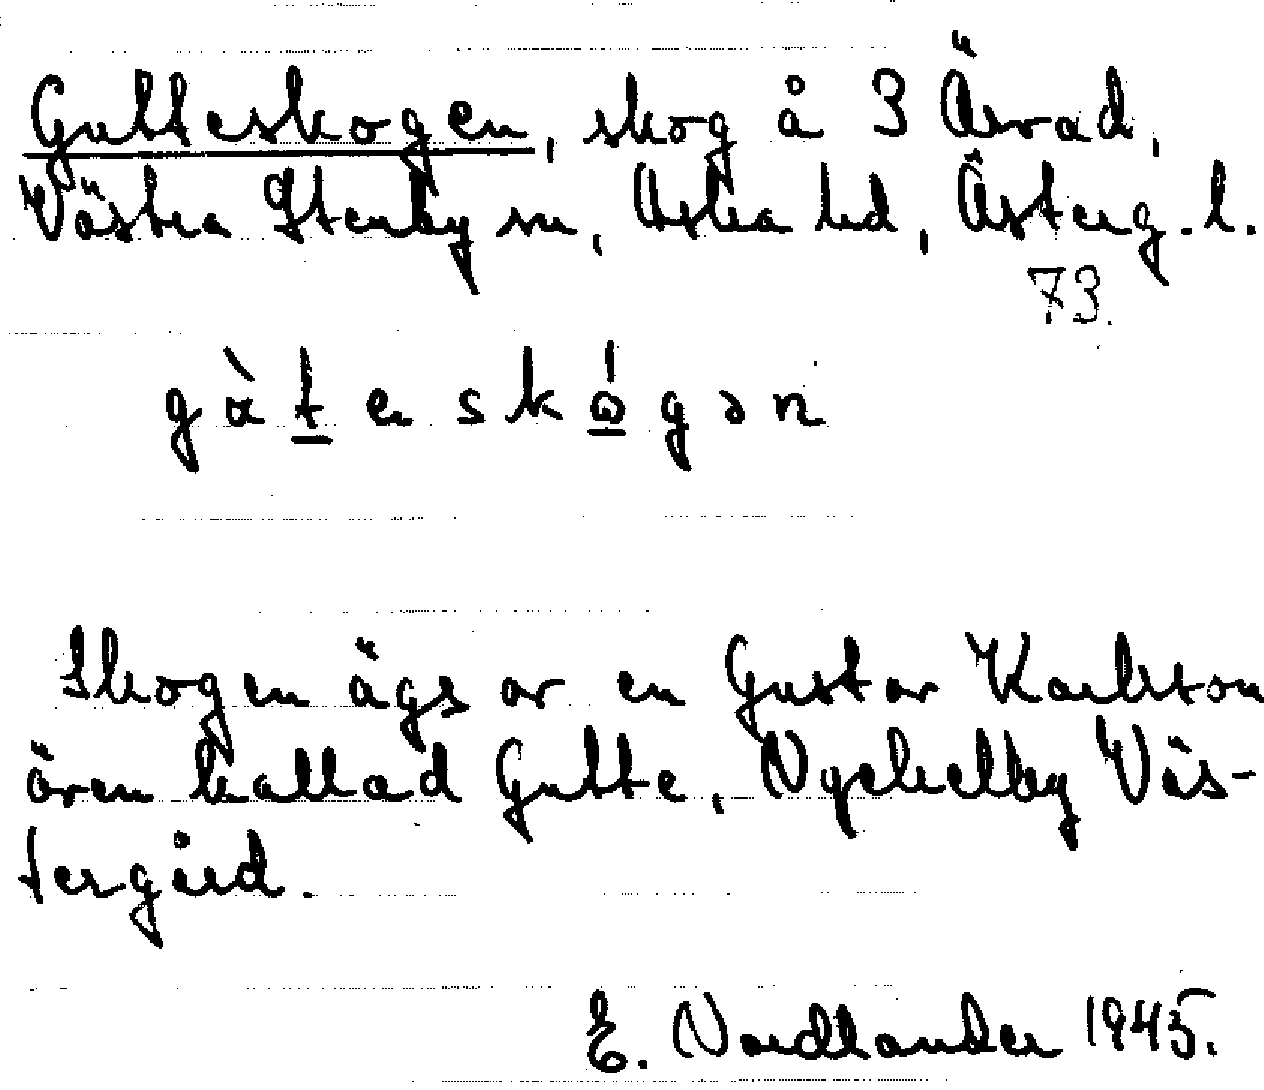 Gutteskogen, skog å 3 Ärvad,
Västra Stenby sn, Aska hd, Österg. l.
73.
gàteskógən
Skogen ägs av en Gustav Karlsson
även kallad Gutte, Nyckelby Väs-
tergård.
E. Nordlander 1945.